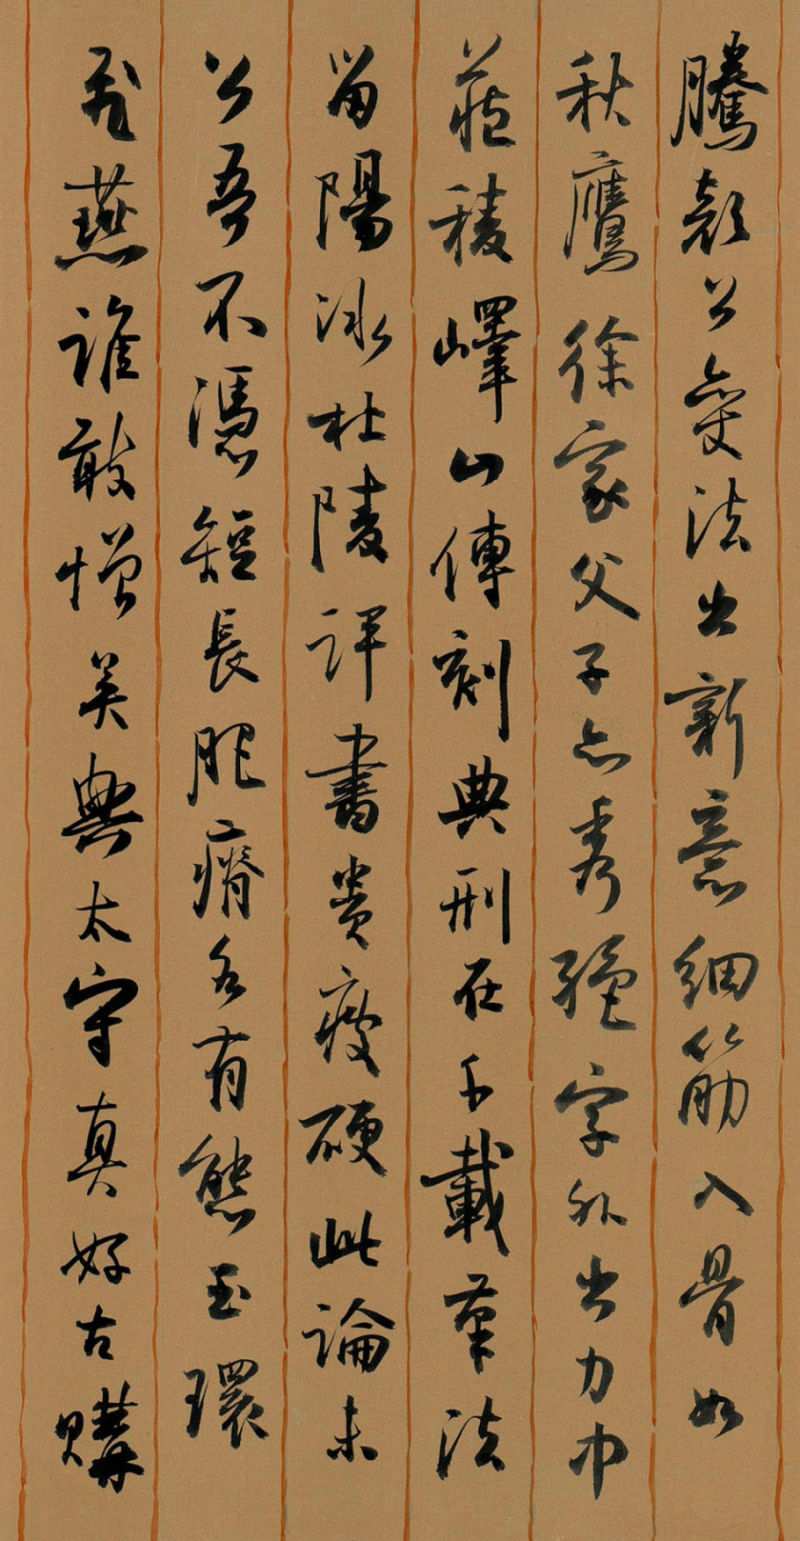 騰顏公變法出新意細筋入骨如
秋鷹徐家父子亦秀絕字外出力中
藏稜嶧山傳刻典刑在千載筆法
留陽冰杜陵評書貴瘦硬此論未
公吾不憑短長肥瘠各有態玉環
飛燕誰敢憎吴興太守真好古購